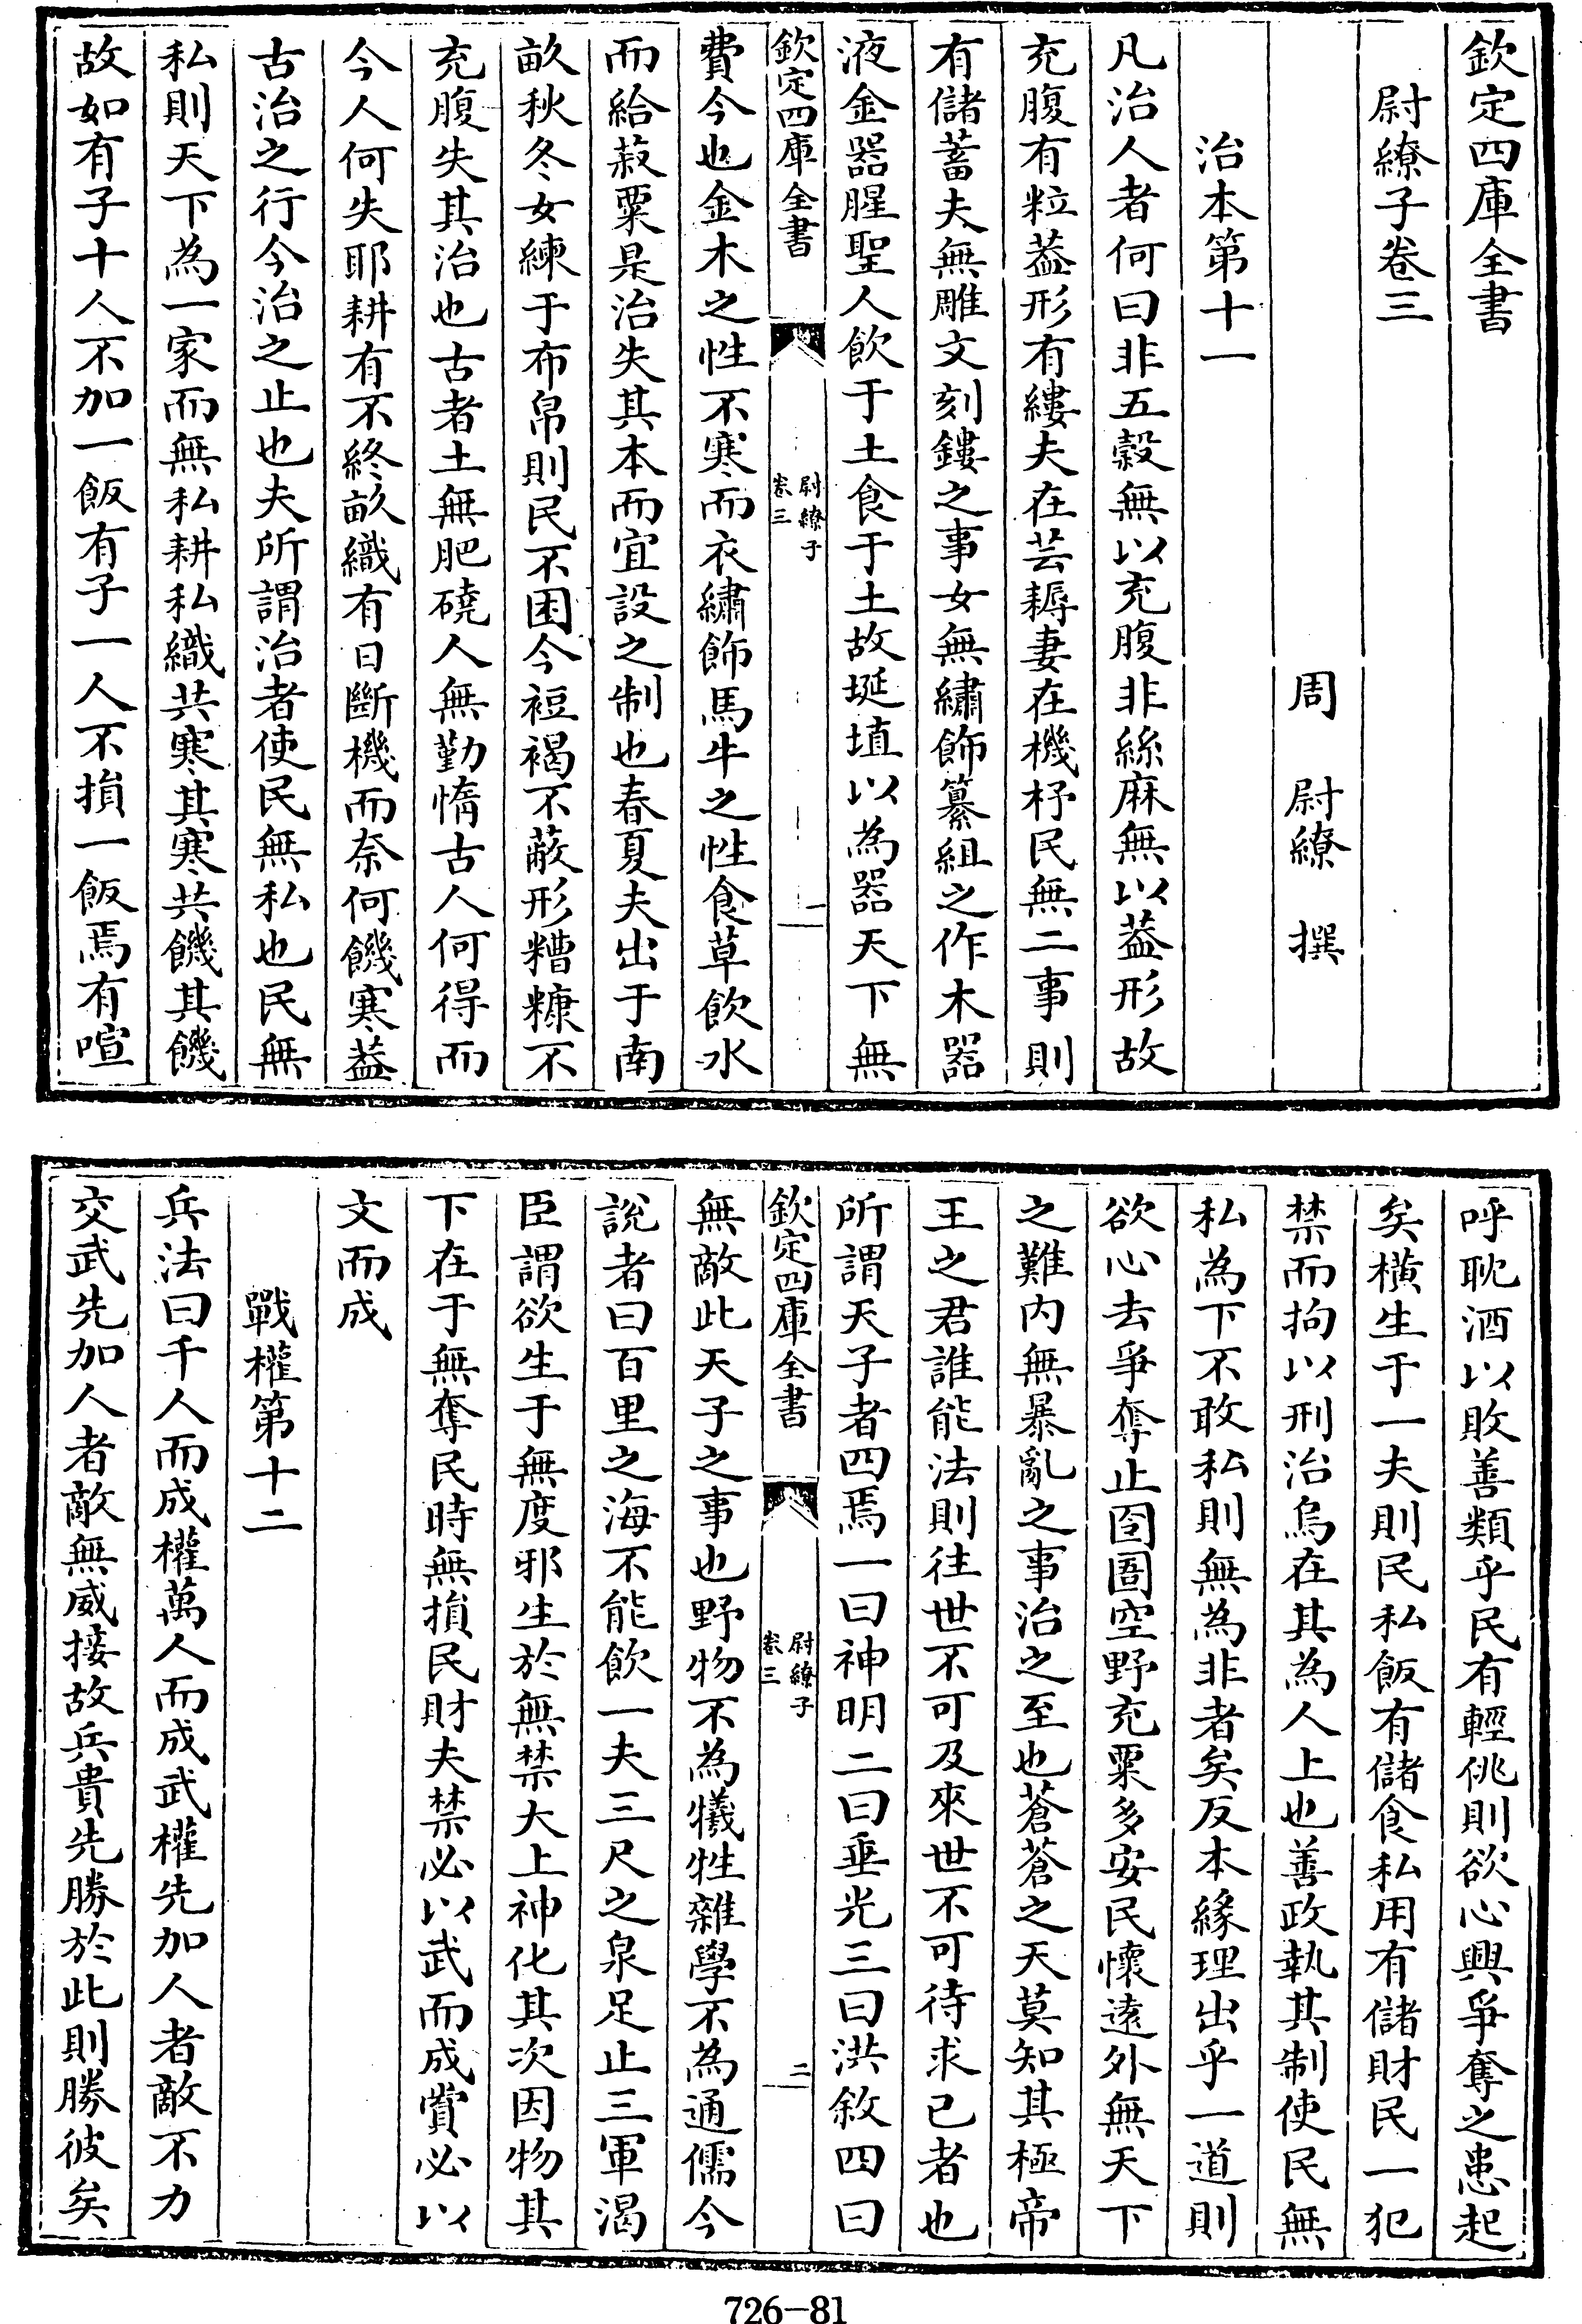 欽定四庫全書
尉繚子卷三
周 尉繚 撰
治本第十一
凡治人者何曰非五穀無以充腹非絲麻無以葢形故
充腹有粒葢形有縷夫在芸耨妻在機杼民無二事則
有儲蓄夫無雕文刻鏤之事女無繡飾纂組之作木器
液金器腥聖人飲于土食于土故埏埴以為器天下無
欽定四庫全書
尉繚子
卷三
一
費今也金木之性不寒而衣繡飾馬牛之性食草飲水
而給菽粟是治失其本而宜設之制也春夏夫出于南
畝秋冬女練于布帛則民不困今裋褐不蔽形糟糠不
充腹失其治也古者土無肥磽人無勤惰古人何得而
今人何失耶耕有不終畝織有日斷機而奈何饑寒葢
古治之行今治之止也夫所謂治者使民無私也民無
私則天下為一家而無私耕私織共寒其寒共饑其饑
故如有子十人不加一飯有子一人不損一飯焉有喧
呼耽酒以敗善類乎民有輕佻則欲心興爭奪之患起
矣橫生于一夫則民私飯有儲食私用有儲財民一犯
禁而拘以刑治烏在其為人上也善政執其制使民無
私為下不敢私則無為非者矣反本緣理出乎一道則
欲心去爭奪止囹圄空野充粟多安民懷遠外無天下
之難内無暴亂之事治之至也蒼蒼之天莫知其極帝
王之君誰能法則往世不可及來世不可待求已者也
所謂天子者四焉一曰神明二曰垂光三曰洪敘四曰
欽定四庫全書
尉繚子
卷三
二
無敵此天子之事也野物不為犧牲雜學不為通儒今
說者曰百里之海不能飲一夫三尺之泉足止三軍渴
臣謂欲生于無度邪生於無禁大上神化其次因物其
下在于無奪民時無損民財夫禁必以武而成賞必以
文而成
戰權第十二
兵法曰千人而成權萬人而成武權先加人者敵不力
交武先加人者敵無威接故兵貴先勝於此則勝彼矣
726-81